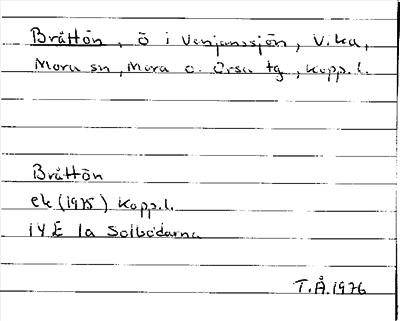 Bråttön, ö i Venjanssjön, Vika,
Mora sn, Mora o. Orsa tg, Kopp. l.
Bråttön
ek (1975) Kopp. l.
14 E 1a Solbodarna
T.Å. 1976